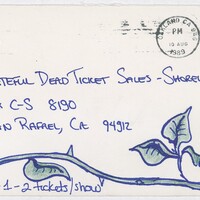 OAKLAND CA
PM
1989
TEFUL DEAD TICKET SALES - SHORELI
C-S 8190
N RAFAEL, CA 94912
1-2 tickets/show